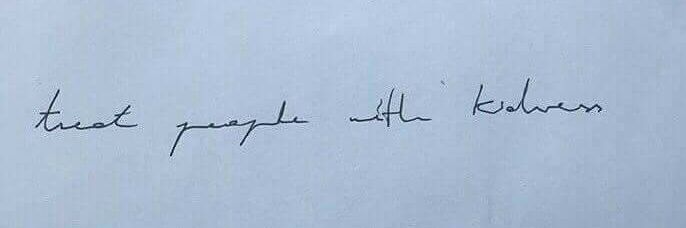 treat people with kidness